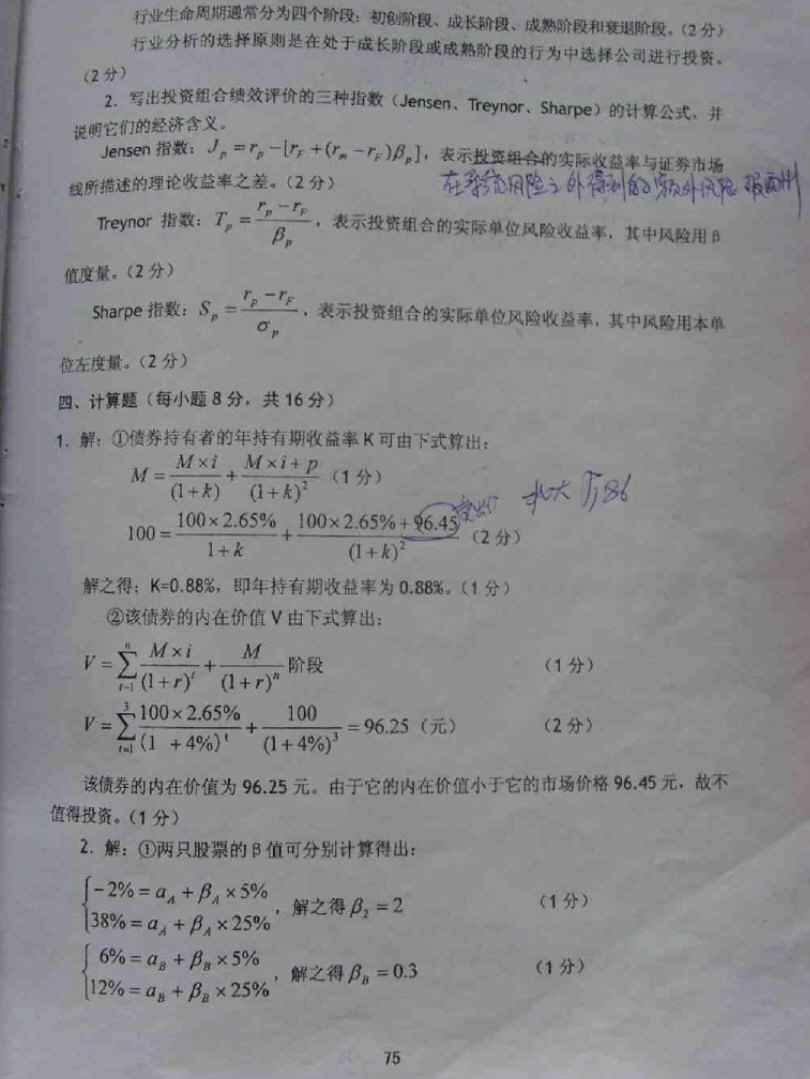 行业生命周期通常分为四个阶段：初创阶段、成长阶段、成熟阶段和衰退阶段。（2分）
行业分析的选择原则是在处于成长阶段或成熟阶段的行为中选择公司进行投资。
（2分）
2．写出投资组合绩效评价的三种指数（Jensen、Treynor、Sharpe）的计算公式，并
说明它们的经济含义。
Jensen 指数：J_p = r_p − [r_F + (r_m − r_F)β_p]，表示投资组合的实际收益率与证券市场
线所描述的理论收益率之差。（2分）
在系统风险之外得到的额外风险报酬州
Treynor 指数：T_p = (r_p − r_F)/β_p，表示投资组合的实际单位风险收益率，其中风险用β
值度量。（2分）
Sharpe 指数：S_p = (r_p − r_F)/σ_p，表示投资组合的实际单位风险收益率，其中风险用本单
位左度量。（2分）
四、计算题（每小题8分，共16分）
1．解：①债券持有者的年持有期收益率K可由下式算出：
M = (M×i)/(1+k) + (M×i+p)/(1+k)²（1分）
100 = (100×2.65%)/(1+k) + (100×2.65%+96.45)/(1+k)²（2分）
解之得：K=0.88%，即年持有期收益率为0.88%。（1分）
②该债券的内在价值V由下式算出：
V = ∑_{t=1}^{n} (M×i)/(1+r)^t + M/(1+r)^n 阶段 （1分）
V = ∑_{t=1}^{3} (100×2.65%)/(1 +4%)^t + 100/(1+4%)³ = 96.25（元） （2分）
该债券的内在价值为96.25元。由于它的内在价值小于它的市场价格96.45元，故不
值得投资。（1分）
2．解：①两只股票的β值可分别计算得出：
{−2% = a_A + β_A × 5%
38% = a_A + β_A × 25%，解之得 β_2 = 2 （1分）
{6% = a_B + β_B × 5%
12% = a_B + β_B × 25%，解之得 β_B = 0.3 （1分）
75